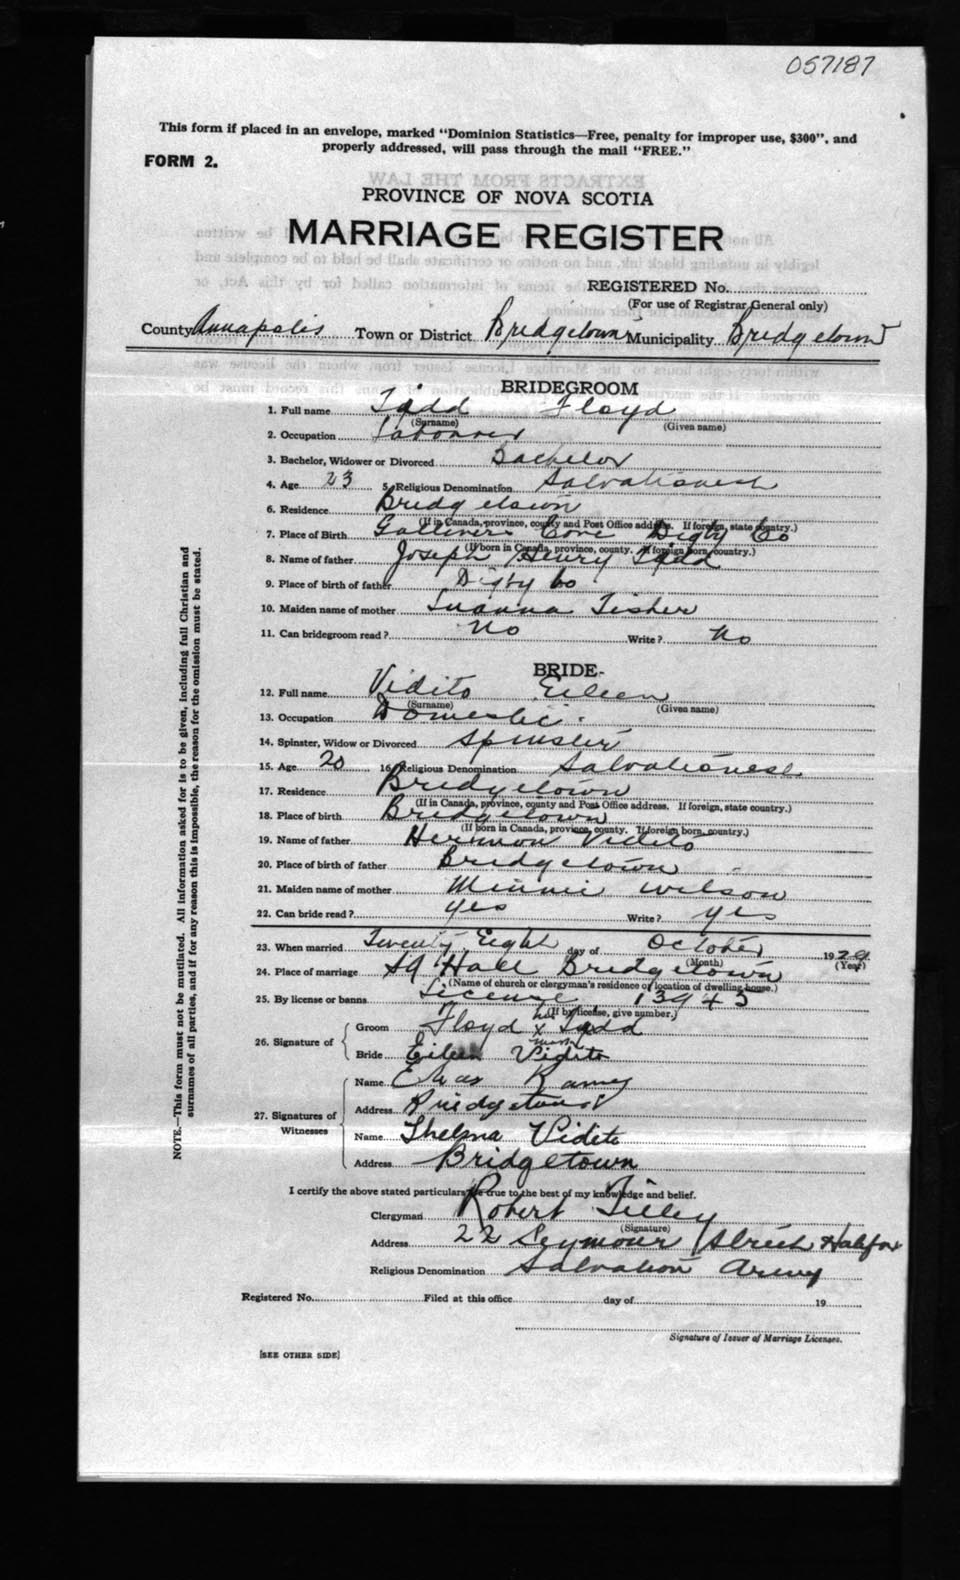 057187
This form if placed in an envelope, marked "Dominion Statistics—Free, penalty for improper use, $300", and
properly addressed, will pass through the mail "FREE."
FORM 2.
PROVINCE OF NOVA SCOTIA
MARRIAGE REGISTER
REGISTERED No.
(For use of Registrar General only)
County Annapolis Town or District Bridgetown Municipality Bridgetown
BRIDEGROOM
1. Full name Tadd Floyd
(Surname) (Given name)
2. Occupation Labourer
3. Bachelor, Widower or Divorced Bachelor
4. Age 23 5. Religious Denomination Salvationest
6. Residence Bridgetown
(If in Canada, province, county and Post Office address. If foreign, state country.)
7. Place of Birth Gullivers Cove Digby Co
(If born in Canada, province, county. If foreign born, country.)
8. Name of father Joseph Henry Tadd
9. Place of birth of father Digby Co
10. Maiden name of mother Suanna Tisher
11. Can bridegroom read? No Write? No
BRIDE-
12. Full name Vidito Eileen
(Surname) (Given name)
13. Occupation Domestic
14. Spinster, Widow or Divorced Spinster
15. Age 20 16. Religious Denomination Salvationest
17. Residence Bridgetown
(If in Canada, province, county and Post Office address. If foreign, state country.)
18. Place of birth Bridgetown
(If born in Canada, province, county. If foreign born, country.)
19. Name of father Hermon Vidito
20. Place of birth of father Bridgetown
21. Maiden name of mother Minnie Wilson
22. Can bride read? yes Write? yes
23. When married Twenty Eight day of October 1929
(Month) (Year)
24. Place of marriage SA Hall Bridgetown
(Name of church or clergyman's residence or location of dwelling house.)
25. By license or banns License 13943
(If by license, give number.)
26. Signature of Groom Floyd his x mark Tadd
Bride Eileen Vidito
27. Signatures of Witnesses Name Ramey
Address Bridgetown
Name Thelma Vidito
Address Bridgetown
I certify the above stated particulars are true to the best of my knowledge and belief.
Clergyman Robert Tilley
(Signature)
Address 22 Seymour Street Halifax
Religious Denomination Salvation Army
Registered No. Filed at this office day of 19
Signature of Issuer of Marriage Licenses.
[SEE OTHER SIDE]
NOTE.—This form must not be mutilated. All information asked for is to be given, including full Christian and
surnames of all parties, and if for any reason this is impossible, the reason for the omission must be stated.